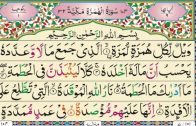 سُوْرَةُ الْهُمَزَةِ مَكِّيَّةٌ
بِسْمِ اللهِ الرَّحْمٰنِ الرَّحِيْمِ
وَيْلٌ لِّكُلِّ هُمَزَةٍ لُّمَزَةِ الَّذِيْ جَمَعَ مَالًا وَّعَدَّدَهٗ
يَحْسَبُ اَنَّ مَالَهٗۤ اَخْلَدَهٗ كَلَّا لَيُنْۢبَذَنَّ فِي
الْحُطَمَةِ وَمَاۤ اَدْرٰىكَ مَا الْحُطَمَةُ نَارُ اللهِ الْمُوْقَدَةُ الَّتِيْ تَطَّلِعُ عَلَى
الْاَفْئِدَةِ اِنَّهَا عَلَيْهِمْ مُّؤْصَدَةٌ فِيْ عَمَدٍ مُّمَدَّدَةٍ